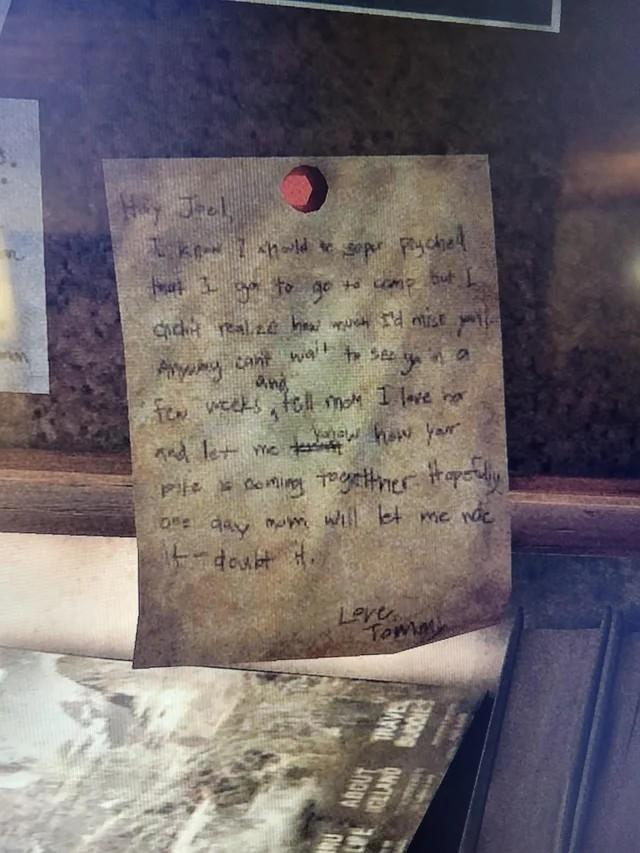 Hey Joel,
I know I should be super psyched
that I got to go to camp but I
didn't realize how much I'd miss you!
Anyway can't wait to see ya in a
and
few weeks, tell mom I love her
know
and let me how your
bike is coming together Hopefully
one day mom will let me ride
it - doubt it.
Love,
Tommy
TRAVEL
GUIDES
ABOUT
ICELAND